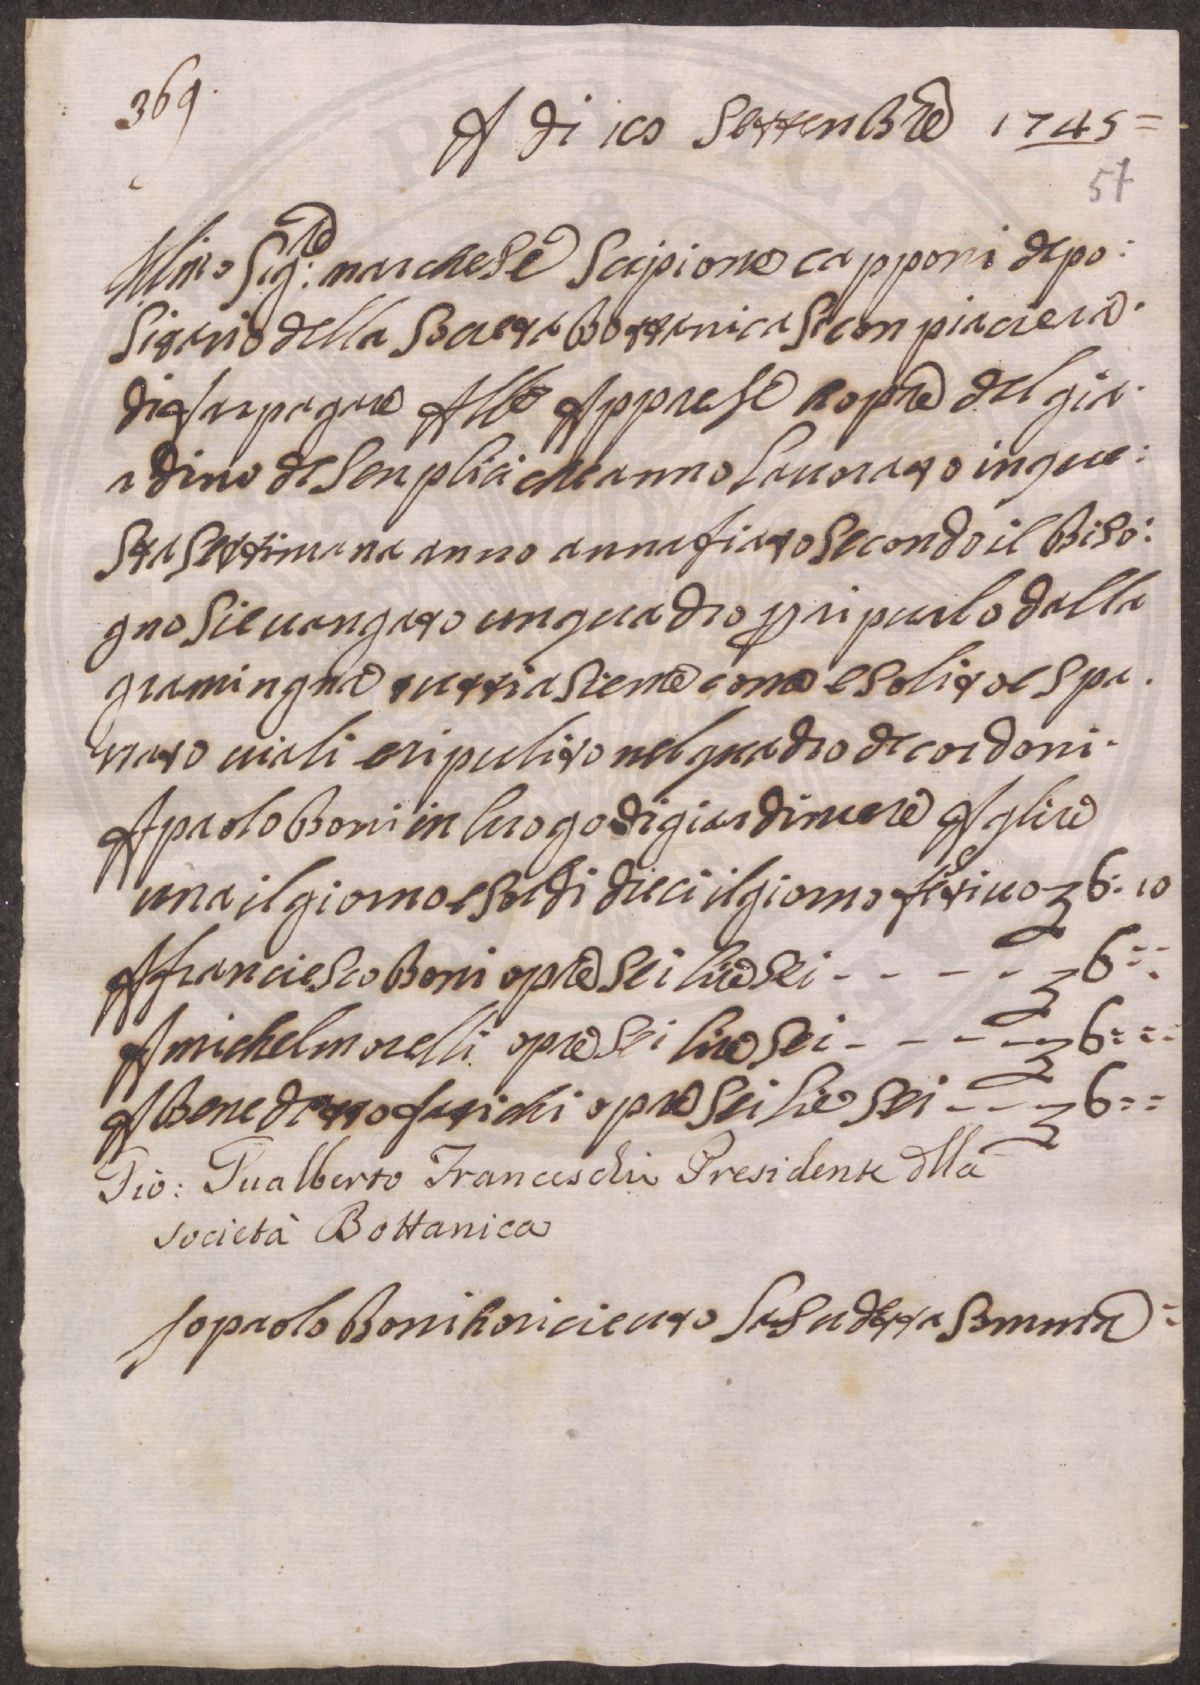 369.
A di 10 Settenbre 1745=
57
Illmo Sig:re marchese Scipione capponi depo:
sitario della Societa Bottanica si conpiacierà
di far pagare Alle Apprese hopre del giar
a dino de Senplici che anno lauorato in que:
sta settimana anno annafiato secondo il biso:
gno sie uangato un quadro per ripurlo dalla
gramingna tutti asieme come e solito e spa.
zzato uiali e ripulito nel quadro de cordoni.
A paolo Boni in luogo di giardiniere A lire
una il giorno e soldi dieci il giorno festiuo £ 6: 10
A franciesco Boni opre sei lire sei - - - - £ 6==
A michel morelli opre sei lire sei - - - - £ 6===
A Benedetto fatichi opre sei lire sei - - - £ 6==
Gio: Gualberto Franceschi Presidente dlla
società Bottanica
Io paolo Boni ho riceuto la sudetta Somma =